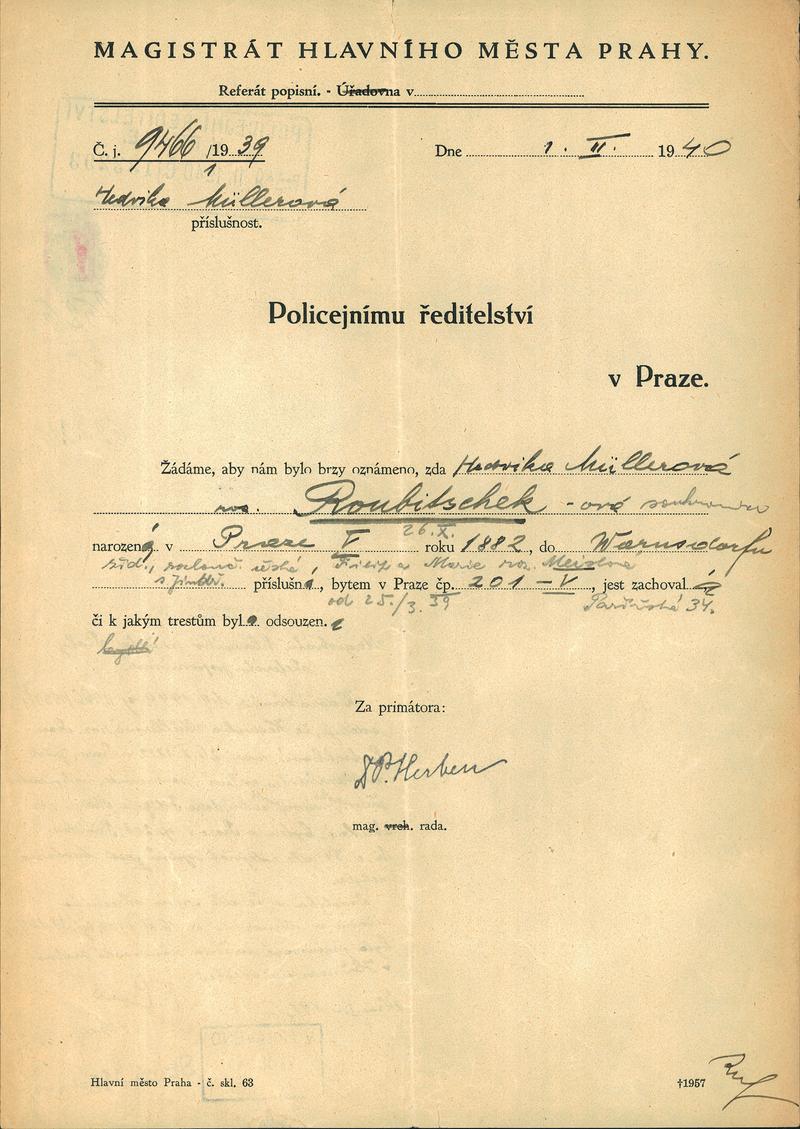 MAGISTRÁT HLAVNÍHO MĚSTA PRAHY.
Referát popisní. - Úřadovna v
Č. j. 9466/1939 Dne 1. II. 1940
Hedvika Müllerová
příslušnost.
Policejnímu ředitelství
v Praze.
Žádáme, aby nám bylo brzy oznámeno, zda Hedvika Müllerová
roz. Roubitschek-ová
26.X.
narozená v Praze V roku 1882, do Warnsdorfu
žid., rozloučená, Filip a Marie roz.
příslušná, bytem v Praze čp. 201-V, jest zachoval.á
od 25./3. 39 Pařížská 34.
či k jakým trestům byl.a odsouzen.a
Za primátora:
Dr. Herben
mag. vrch. rada.
Hlavní město Praha - č. skl. 63 †1957